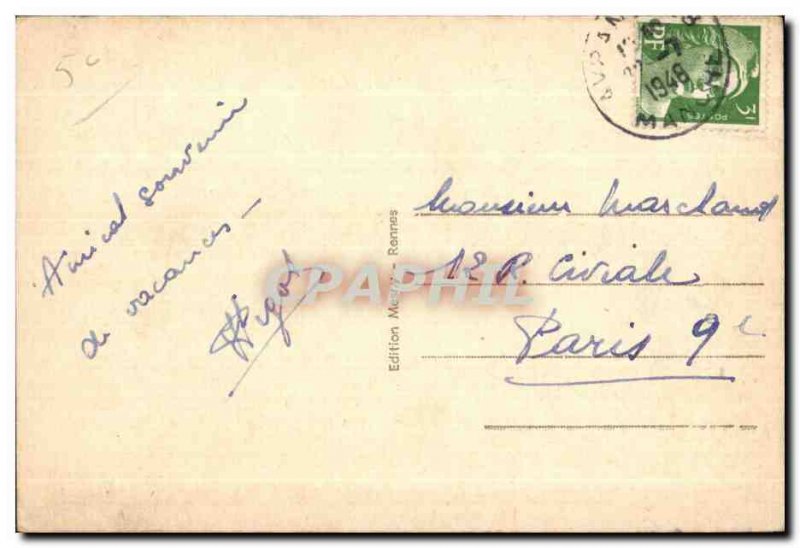 5c
Amical souvenir
de vacances -
Edition - Rennes
CPAPHIL
RF
3F
POSTES
1946
Monsieur Marchand
12 R. Civiale
Paris